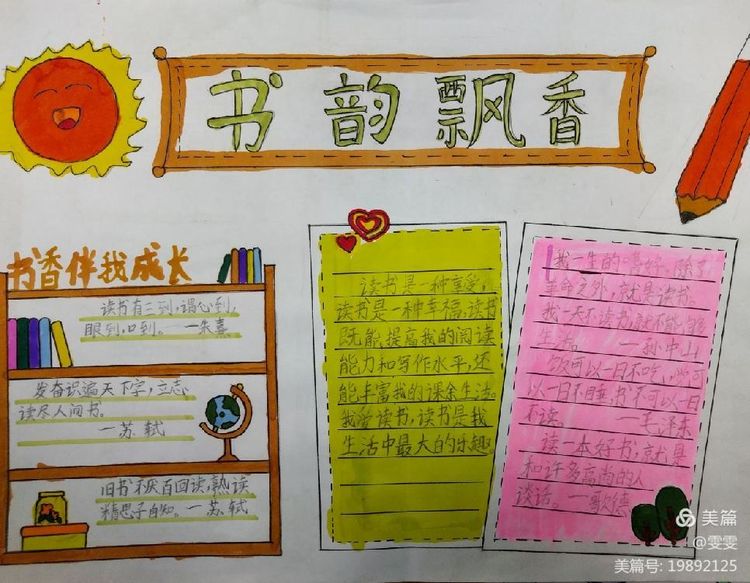 书韵飘香
书香伴我成长
读书有三到,谓心到,
眼到,口到。 —朱熹
发奋识遍天下字,立志
读尽人间书。
—苏轼
旧书不厌百回读,熟读
精思子自知。—苏轼
读书是一种享受,
读书是一种幸福,读书
既能提高我的阅读
能力和写作水平,还
能丰富我的课余生活。
我爱读书,读书是我
生活中最大的乐趣。
我一生的嗜好,除了
革命之外,就是读书。
我一天不读书,就不能够
生活。 —孙中山
饭可以一日不吃,觉可
以一日不睡,书不可以一日
不读。 —毛泽东
读一本好书,就是
和许多高尚的人
谈话。—歌德
美篇
@雯雯
美篇号: 19892125